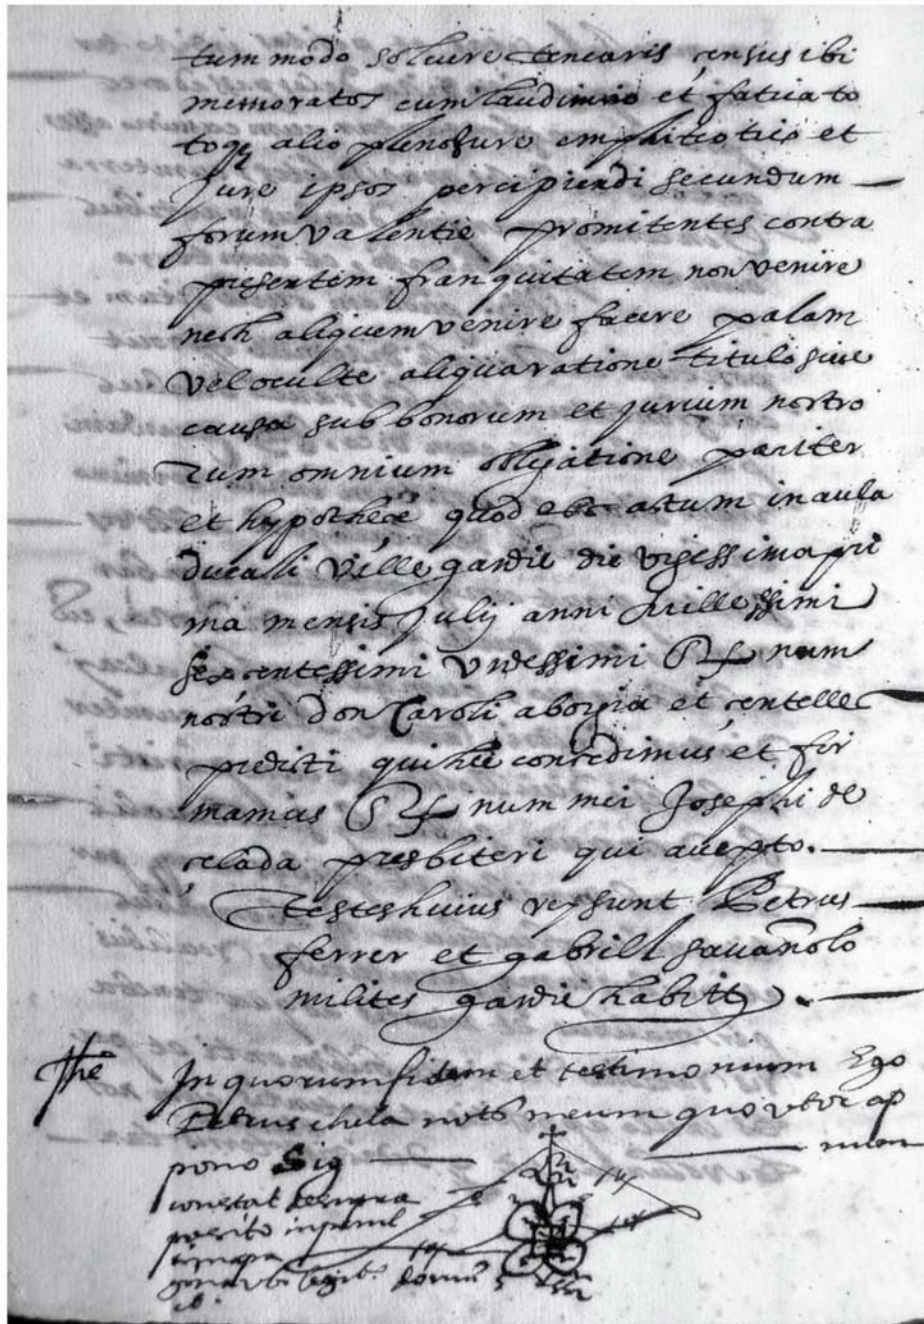 tum modo soluere tenearis census ibi
memoratos cum laudimio et fatica to
toq3 alio pleno jure emphiteotico et
jure ipsos percipiendi secundum
forum valentie promitentes contra
presentem franquitatem non venire
nech aliquem venire facere palam
vel oculte aliqua ratione titulo sive
causa sub bonorum et jurium nostro
rum omnium obligatione pariter
et hypothece quod est actum in aula
ducali ville gandie die vigessima pri
ma mensis Julij anni Millessimi
sexcentessimi undessimi Sig num
nostri don Caroli a borgia et centelles
predicti qui hec concedimus et fir
mamus Sig num mei Josephi de
celada presbiteri qui accepto.
testes huius rey sunt Petrus
ferrer et gabriell savanolo
milites gandie habitt.
In quorum fidem et testimonium Ego
Petrus notus meum quo utor ap
pono Sig num
constat
posito in